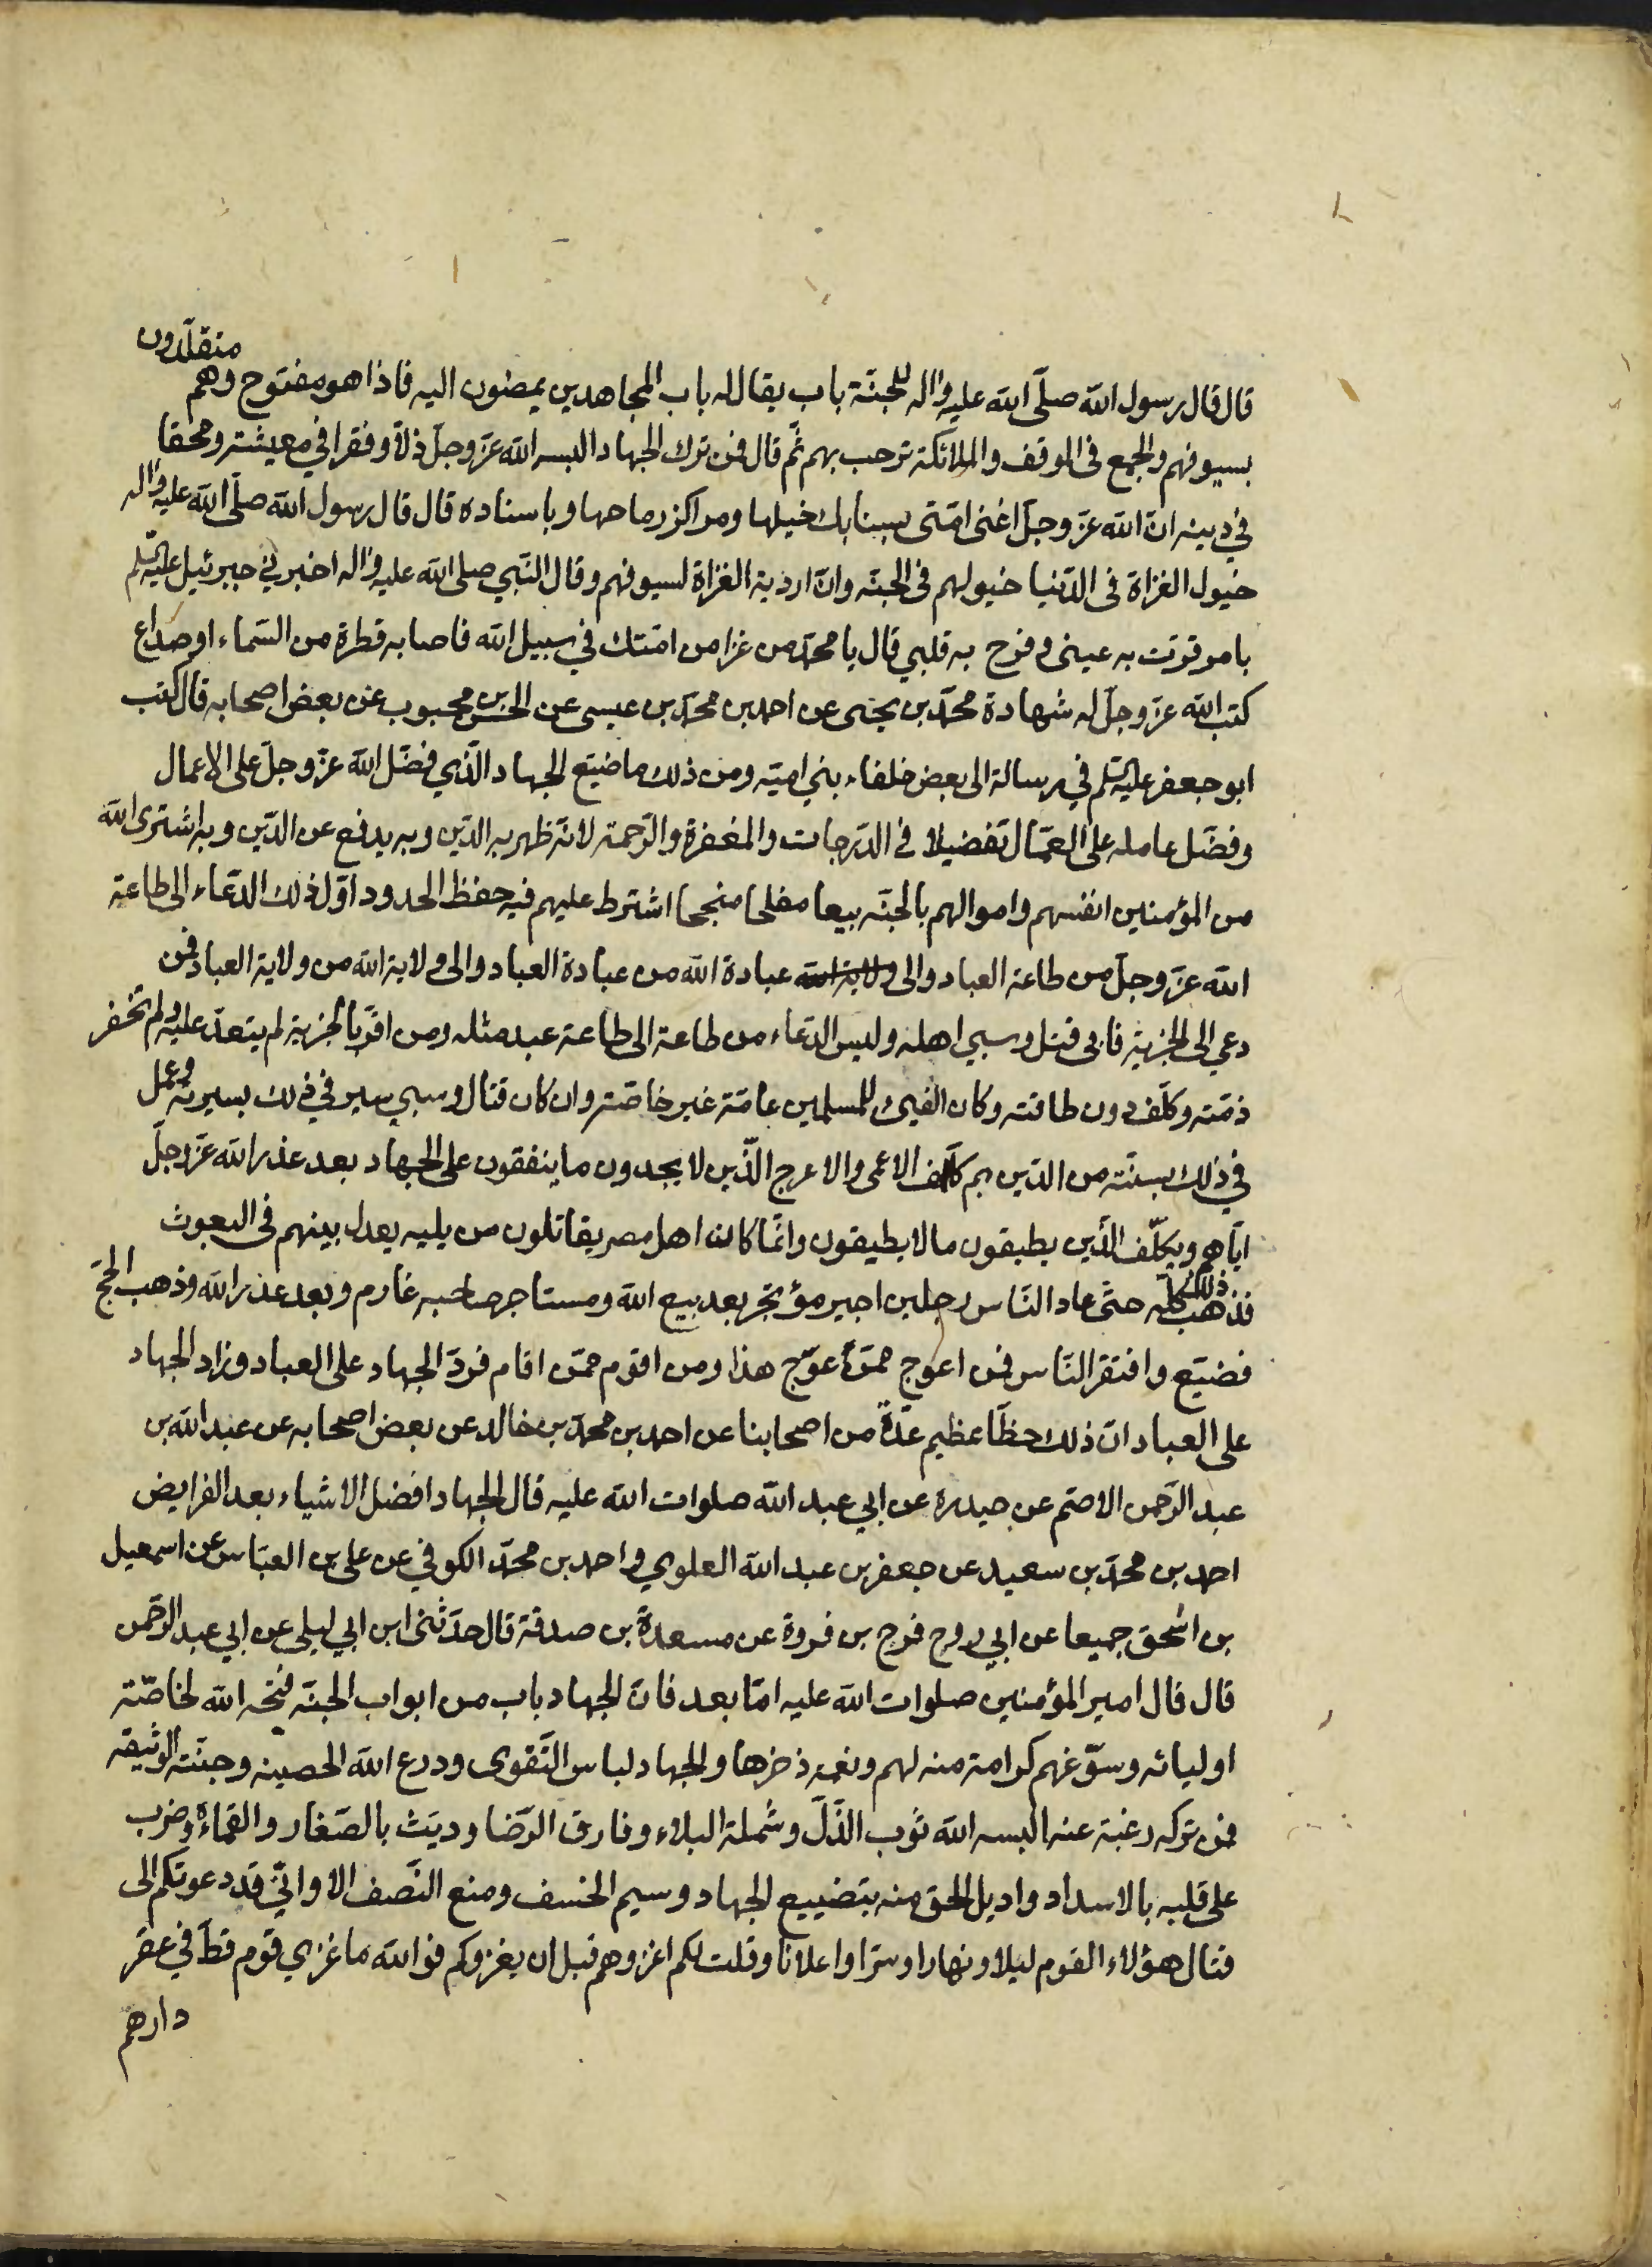 قال قال رسول الله صلّى الله عليه واله للجنّة باب يقال له باب المجاهدين يمضون اليه فاذا هو مفتوح وهم متقلّدون
بسيوفهم والجمع فى الموقف والملائكة ترحب بهم ثمّ قال فمن ترك الجهاد البسه الله عزّ وجلّ ذلّا وفقرا في معيشته ومحقا
في دينه انّ الله عزّ وجلّ اغنى امّتى بسنابك خيلها ومراكز رماحها وباسناده قال قال رسول الله صلّى الله عليه واله
خيول الغزاة فى الدّنيا خيولهم فى الجنّه وانّ اردية الغزاة لسيوفهم وقال النّبي صلى الله عليه واله اخبرني جبرئيل عليه السّلم
بامر قرّت به عينى وفرح به قلبي قال يا محمّد من غزا من امّتك في سبيل الله فاصابه قطرة من السّماء او صداع
كتب الله عزّ وجلّ له شهادة محمّد بن يحيى عن احمد بن محمّد بن عيسى عن الحسن بن محبوب عن بعض اصحابه قال كتب
ابو جعفر عليه السّلم في رسالة الى بعض خلفاء بني اميّه ومن ذلك ما ضيّع الجهاد الّذي فضّل الله عزّ وجلّ على الاعمال
وفضّل عامله على العمّال تفضيلا في الدّرجات والمغفرة والرّحمة لانّه ظهر به الدّين وبه يدفع عن الدّين وبه اشترى الله
من المؤمنين انفسهم واموالهم بالجنّه بيعا مفلحا منجحا اشترط عليهم فيه حفظ الحدود اوّل ذلك الدّعاء الى طاعة
الله عزّ وجلّ من طاعة العباد والى ولاية الله عبادة الله من عبادة العباد والى ولاية الله من ولاية العباد فمن
دعي الى الجزية فابى قتل وسبي اهله وليس الدّعاء من طاعة الى طاعة عبد مثله ومن اقرّ بالجزية لم يتعدّ عليه ولم تخفر
ذمّته وكلّف دون طاقته وكان الفيئ للمسلمين عامّة غير خاصّة وان كان قتال وسبي سير في ذلك بسيرته وعمل
في ذلك بسنّته من الدّين ثم كلّف الاعمى والاعرج الّذين لا يجدون ما ينفقون على الجهاد بعد عذر الله عزّ وجلّ
ايّاهم ويكلّف الّذين يطيقون ما لا يطيقون وانّما كان اهل مصر يقاتلون من يليه يعدل بينهم فى البعوث
فذهب ذلك كلّه حتّى عاد النّاس رجلين اجير مؤتجر بعد بيع الله ومستاجر صاحبه غارم وبعد عذر الله وذهب الحجّ
فضيّع وافتقر النّاس فمن اعوج ممّن عوّج هذا ومن اقوم ممّن اقام فردّ الجهاد على العباد وزاد الجهاد
على العباد انّ ذلك حظّا عظيم عدّة من اصحابنا عن احمد بن محمّد بن خالد عن بعض اصحابه عن عبد الله بن
عبد الرّحمن الاصمّ عن حيدرة عن ابي عبد الله صلوات الله عليه قال الجهاد افضل الاشياء بعد الفرايض
احمد بن محمّد بن سعيد عن جعفر بن عبد الله العلوي واحمد بن محمّد الكوفي عن على بن العبّاس عن اسمعيل
بن اسحق جميعا عن ابي روح فرج بن فروة عن مسعدة بن صدقة قال حدّثنى ابن ابي ليلى عن ابي عبد الرّحمن
قال قال امير المؤمنين صلوات الله عليه امّا بعد فانّ الجهاد باب من ابواب الجنّه فتحه الله لخاصّة
اوليائه وسوّغهم كرامة منه لهم ونعمه ذخرها والجهاد لباس التّقوى ودرع الله الحصينه وجنّته الوثيقه
فمن تركه رغبة عنه البسه الله ثوب الذّلّ وشملة البلاء وفارق الرّضا وديّث بالصّغار والقماءة وضرب
على قلبه بالاسداد واديل الحق منه بتضييع الجهاد وسيم الخسف ومنع النّصف الا وانّي قد دعوتكم الى
قتال هؤلاء القوم ليلا ونهارا وسّرا واعلانا وقلت لكم اغزوهم قبل ان يغزوكم فوالله ما غزي قوم قطّ في عقر
دارهم